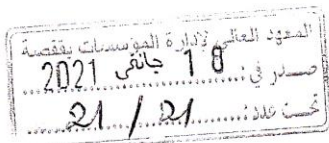 المعهد العالي لإدارة المؤسسات بقفصة
صـــدر في: 18 جانفي 2021
تحـــت عدد: 21 / 21